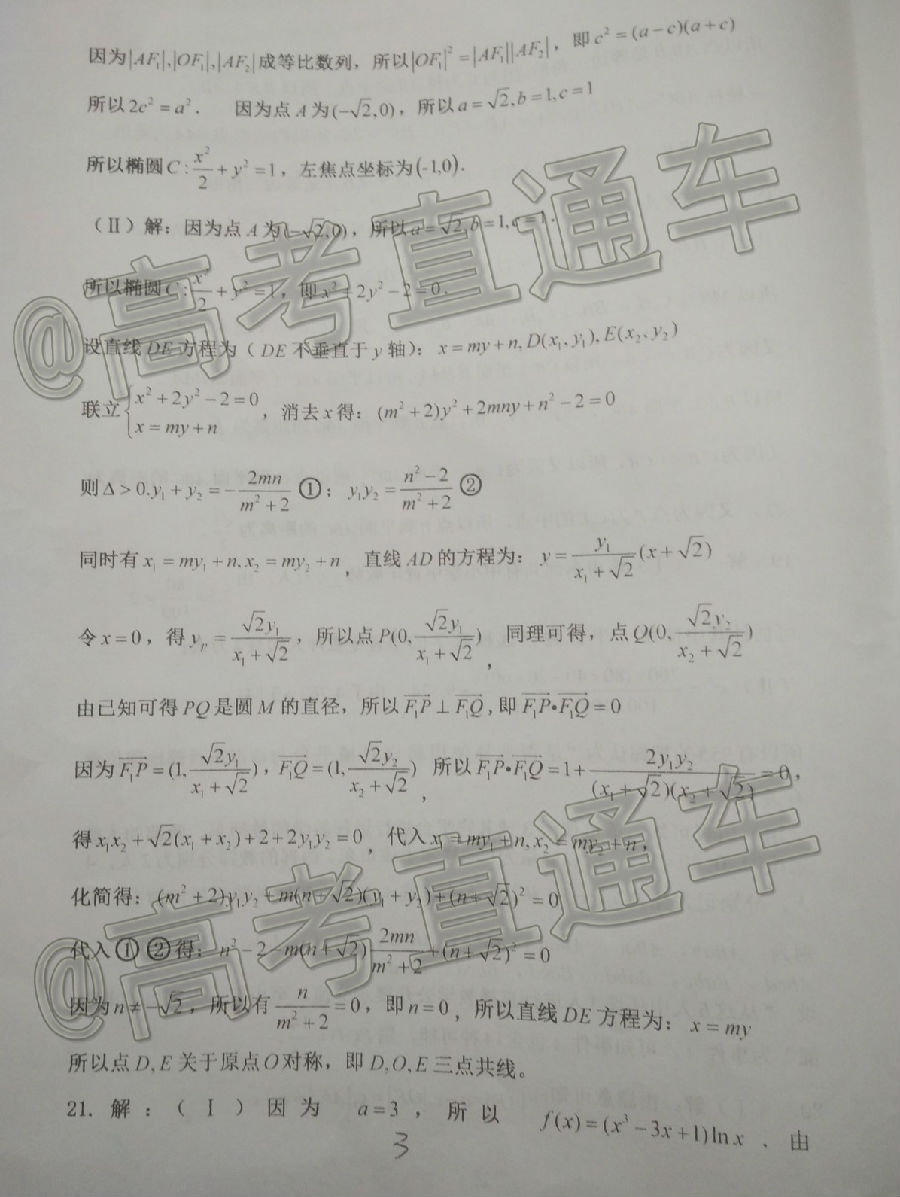 因为|AF₁|,|OF₁|,|AF₂|成等比数列，所以|OF₁|²=|AF₁||AF₂|，即c²=(a−c)(a+c)
所以2c²=a². 因为点A为(−√2,0)，所以a=√2,b=1,c=1
所以椭圆C:x²/2+y²=1，左焦点坐标为(-1,0).
（Ⅱ）解：因为点A为(−√2,0)，所以a=√2,b=1,c=1.
所以椭圆C:x²/2+y²=1，即x²+2y²−2=0.
设直线DE方程为（DE不垂直于y轴）：x=my+n,D(x₁,y₁),E(x₂,y₂)
联立{x²+2y²−2=0
x=my+n，消去x得：(m²+2)y²+2mny+n²−2=0
则Δ>0.y₁+y₂=−2mn/(m²+2) ①；y₁y₂=(n²−2)/(m²+2) ②
同时有x₁=my₁+n.x₂=my₂+n，直线AD的方程为：y=y₁/(x₁+√2)(x+√2)
令x=0，得y_P=√2y₁/(x₁+√2)，所以点P(0,√2y₁/(x₁+√2))，同理可得，点Q(0,√2y₂/(x₂+√2))
由已知可得PQ是圆M的直径，所以F₁P⊥F₁Q,即F₁P•F₁Q=0
因为F₁P=(1,√2y₁/(x₁+√2))，F₁Q=(1,√2y₂/(x₂+√2))，所以F₁P•F₁Q=1+2y₁y₂/((x₁+√2)(x₂+√2))=0，
得x₁x₂+√2(x₁+x₂)+2+2y₁y₂=0，代入x₁=my₁+n,x₂=my₂+n，
化简得：(m²+2)y₁y₂+m(n+√2)(y₁+y₂)+(n+√2)²=0
代入①②得：n²−2−m(n+√2)2mn/(m²+2)+(n+√2)²=0
因为n≠−√2，所以有n/(m²+2)=0，即n=0，所以直线DE方程为：x=my
所以点D,E关于原点O对称，即D,O,E三点共线。
21. 解：（Ⅰ）因为 a=3，所以 f(x)=(x³−3x+1)ln x．由
3
@高考直通车
@高考直通车